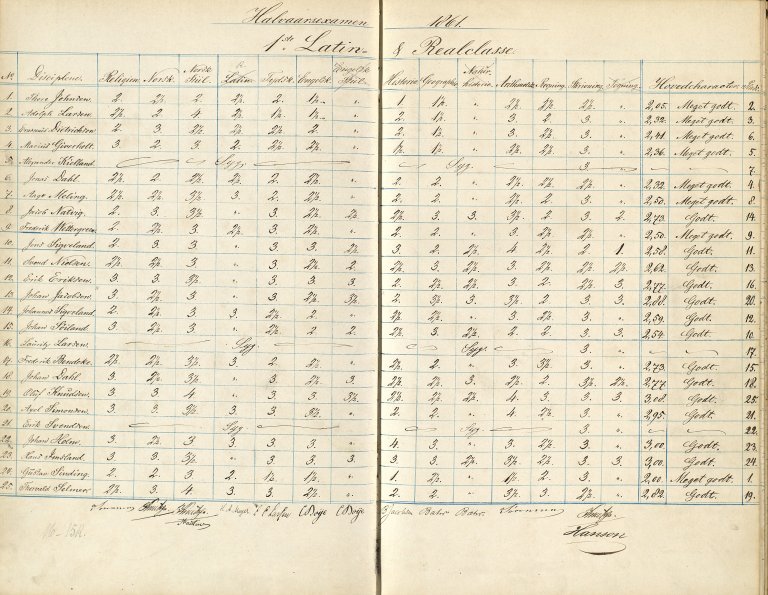 Halvaarsexamen 1861.
1ste Latin- & Realclasse.
No. Disciplene. Religion. Norsk. Norsk Stiil. Latin. Tydsk. Engelsk. Engelsk Stiil. Historie. Geographie. Natur-historie. Arithmetik. Regning. Skrivning. Tegning. Hovedcharacter.
1. Thore Johnsen. 2. 2½. 2. 2½. 2. 1½. " 1. 1½. " 2½. 2½. 2½. " 2,05. Meget godt. 2.
2. Adolph Larsen. 2. 2½. 4. 2½. 1½. 1½. " 2. 1½. " 3. 2. 3. " 2,32. Meget godt. 3.
3. Dietrichson. 2. 3. 2½. 2½. 2½. 2. " 2. 1½. " 3. 2½. 3. " 2,41. Meget godt. 6.
4. Marius 3. 2. 3. 2. 2½. 2½. " 1½. 1½. " 2½. 2½. 3. " 2,36. Meget godt. 5.
5. Alexander Kielland. Syg. Syg. 3. " 7.
6. Jens Dahl. 2½. 2. 2½. 2½. 2. 2½. " 2. 2. " 2½. 2½. 2½. " 2,32. Meget godt. 4.
7. Aage Meling. 2½. 2½. 3½. 3. 2. 2½. " 2. 2. " 2½. 2. 3. " 2,50. Meget godt. 8.
8. Jacob Natvig. 2. 3. 3½. " 3. 2½. 2½. 2½. 3. 3. 3½. 2. 3. 2. 2,73. Godt. 14.
9. Frederik 2. 2½. 3. 2½. 3. 2½. " 2. 2. " 3. 2½. 2½. " 2,50. Meget godt. 9.
10. Jens Sigveland. 2. 3. 3. " 3. 3. 2½. 3. 2. 2½. 4. 2½. 2. 1. 2,58. Godt. 11.
11. Svend Nielsen. 2½. 2½. 3. " 3. 2½. 2. 2½. 3. 2½. 3. 2½. 2½. 2½. 2,62. Godt. 13.
12. Erik Eriksen. 3. 3. 3½. " 3. 3. 3. 2. 2½. 2½. 3. 2. 2½. 3. 2,77. Godt. 16.
13. Johan Jacobsen. 3. 2½. 3. " 3. 2½. 3½. 2. 3½. 3. 3½. 2. 3. 3. 2,88. Godt. 20.
14. Johannes Sigveland. 2. 2½. 3. 3. 2½. 2. " 2½. 2½. " 3. 2½. 3. " 2,59. Godt. 12.
15. Johan Sørland. 3. 2½. 3. " 2½. 2. 2. 2½. 3. 2½. 2. 2. 3. 3. 2,54. Godt. 10.
16. Lauritz Larsen. Syg. Syg. 3. " 17.
17. Frederik Bendeke. 2½. 2½. 3½. 3. 2. 2½. " 2½. 2. " 3. 3½. 3. " 2,73. Godt. 15.
18. Johan Dahl. 3. 2½. 3½. " 3. 2½. 3. 2½. 3. 2½. 2½. 2. 3½. 2½. 2,77. Godt. 18.
19. Oluf Knudsen. 3. 3. 4. " 3. 3. 3½. 2½. 2½. 2½. 4. 3. 3. 3. 3,08. Godt. 25.
20. Axel Simonsen. 3. 3. 3½. 3. 3. 3½. " 2. 2. " 4. 2½. 3. " 2,95. Godt. 21.
21. Erik Svendsen. Syg. Syg. 3. " 22.
22. Johan Holm. 3. 2½. 3. 3. 3. 3. " 4. 3. " 3. 2½. 3. " 3,00. Godt. 23.
23. 3. 3. 3½. " 3. 3. 3. 3. 3. 2½. 3½. 2½. 3. 3. 3,00. Godt. 24.
24. Gustav Sinding. 2. 2. 3. 2. 1½. 1½. " 1. 2½. " 1½. 2. 3. " 2,00. Meget godt. 1.
25. Thorvald Selmer. 2½. 3. 4. 3. 3. 2½. " 2. 2. " 3½. 3. 2½. " 2,82. Godt. 19.
C Boye C Boye P. Jacobsen Bahr. Bahr.
Hanson